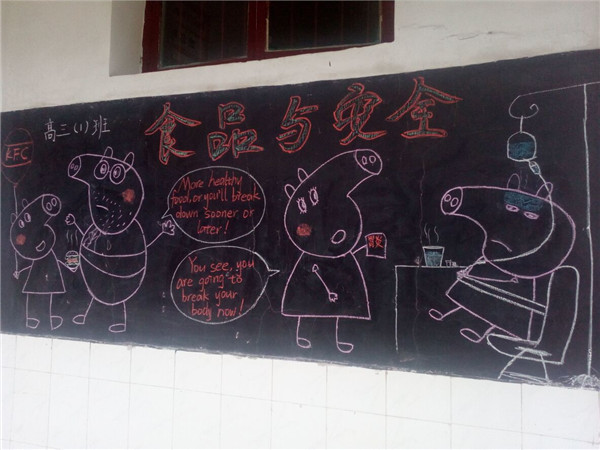 高三(1)班
食品与安全
KFC
More healthy
food, or you'll break
down sooner or
later!
You see, you
are going to
break your
body now!